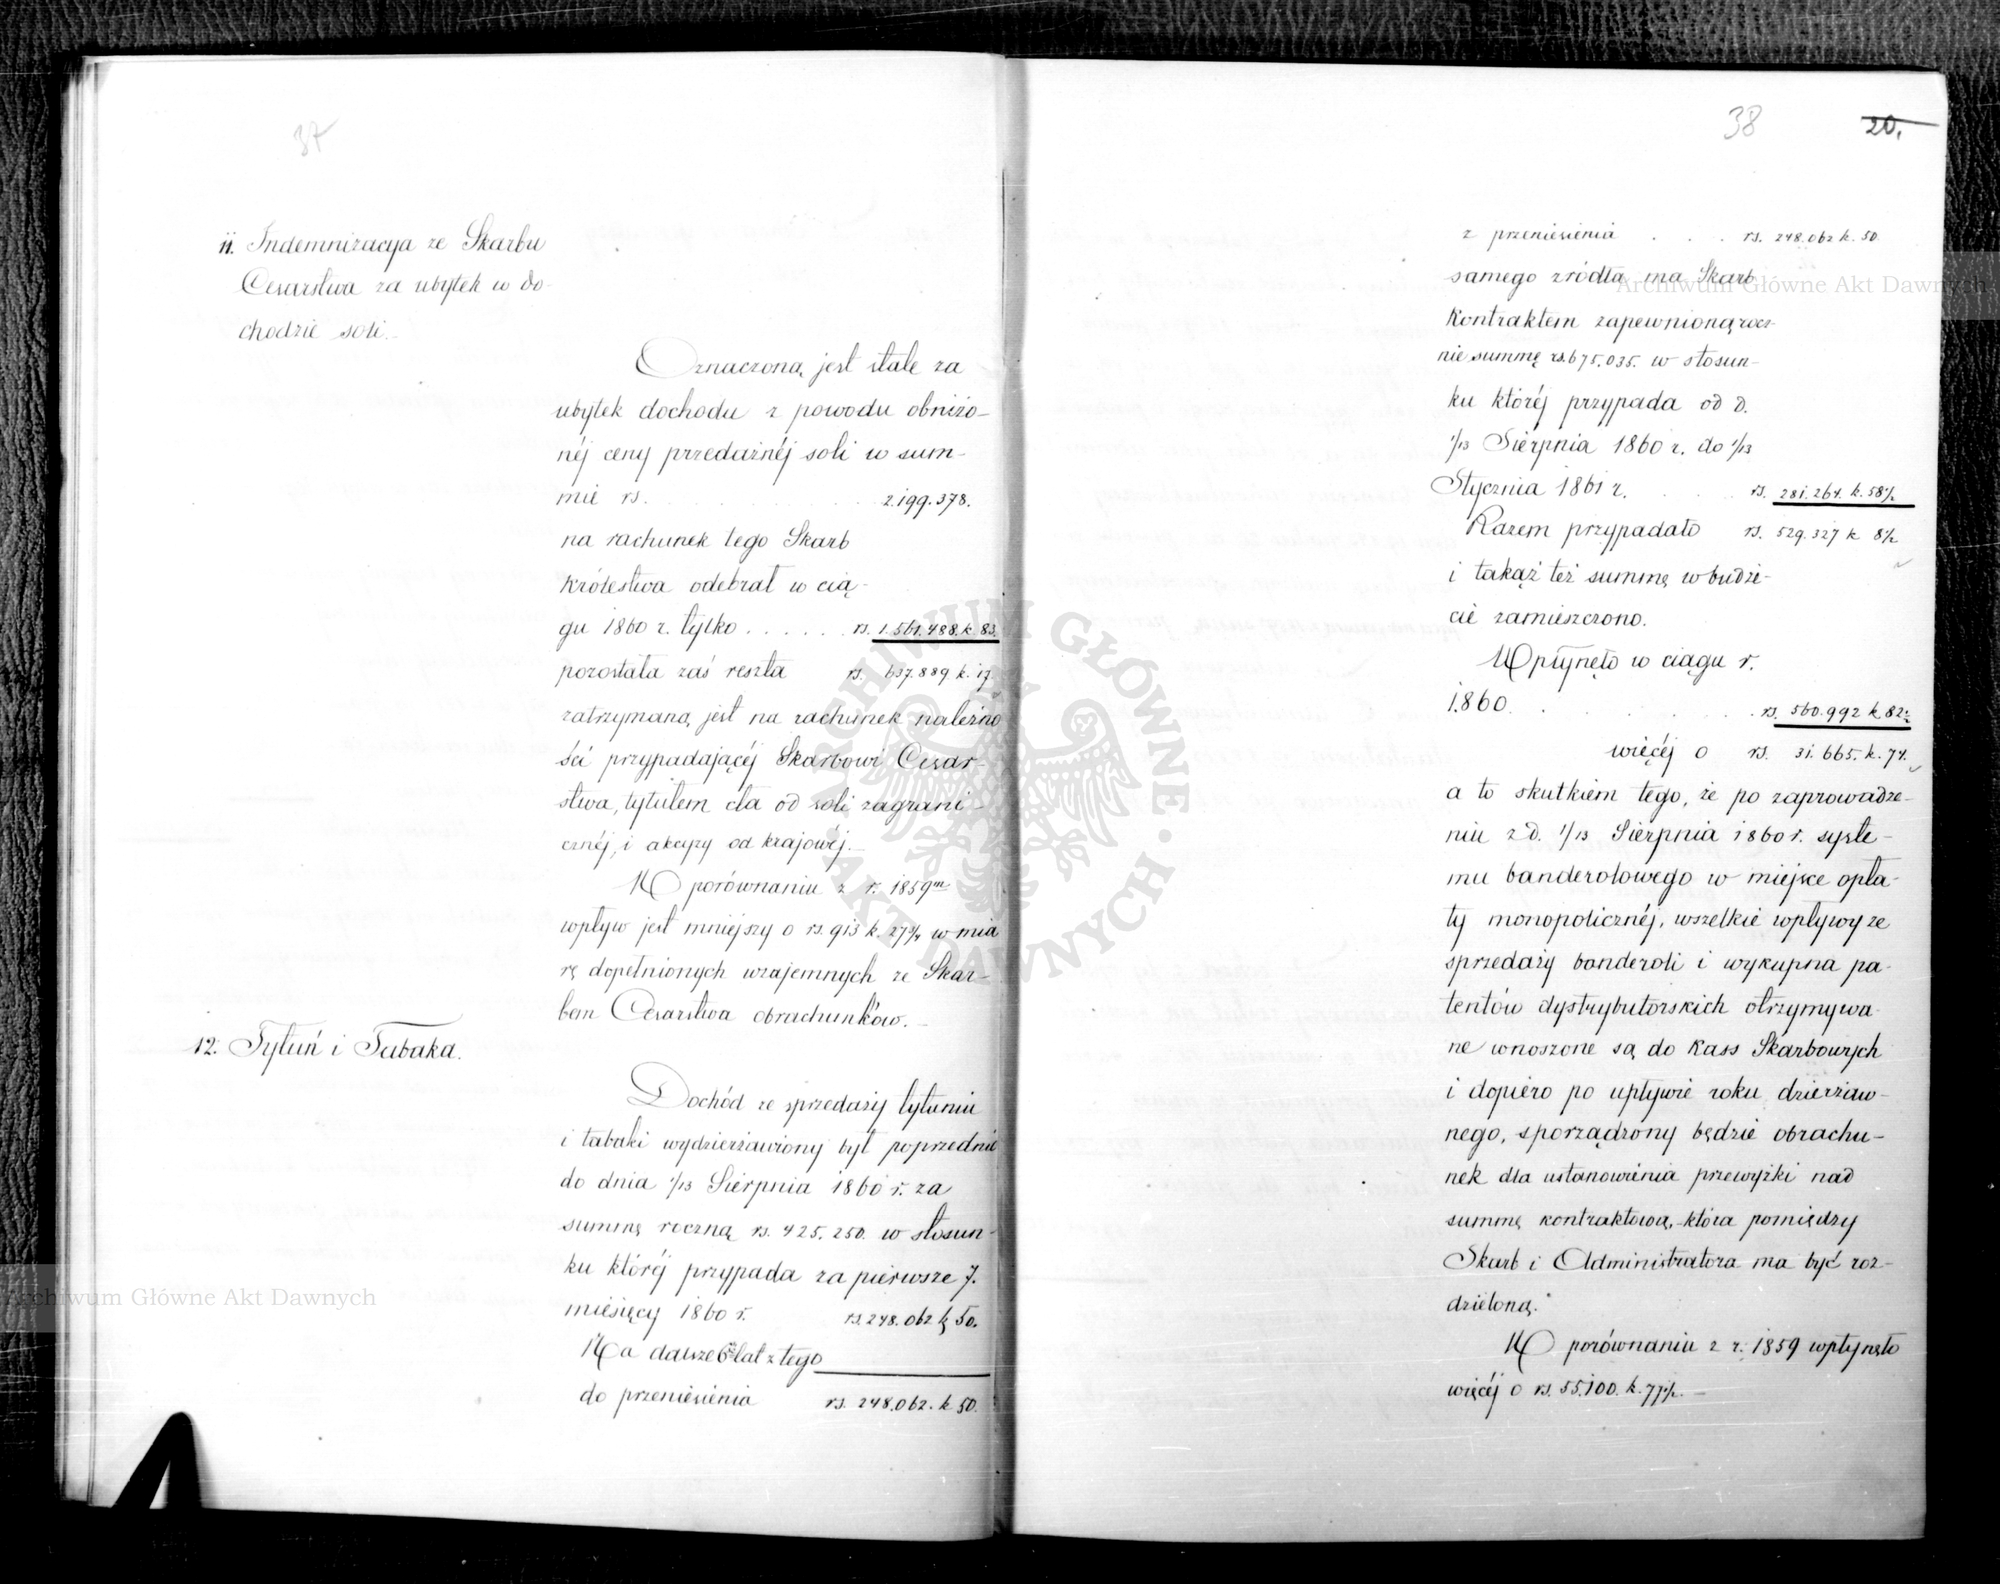 37
11. Indemnizacya ze Skarbu
Cesarstwa za ubytek w do-
chodzie soli.
Oznaczoną jest stale za
ubytek dochodu z powodu obniżo-
néj ceny przedażnéj soli w sum-
mie rs. . . . . . . . 2.199.378.
na rachunek tego Skarb
Królestwa odebrał w cią-
gu 1860 r. tylko . . . . . . rs. 1.561.488. k. 83.
pozostała zaś reszta rs. 637.889 k. 17.
zatrzymaną jest na rachunek należno
ści przypadającéj Skarbowi Cesar-
stwa, tytułem cła od soli zagrani-
cznéj, i akcyzy od krajowéj.
W porównaniu z r. 1859m
wpływ jest mniejszy o rs. 913 k. 27 3/4 w mia
rę dopełnionych wzajemnych ze Skar-
bem Cesarstwa obrachunków.
12. Tytuń i Tabaka.
Dochód ze sprzedaży tytuniu
i tabaki wydzierżawiony był poprzednie
do dnia 1/13 Sierpnia 1860 r. za
summę roczną rs. 425.250. w stosun-
ku któréj przypada za pierwsze 7.
miesięcy 1860 r. rs. 248.062 k 50.
Na dalsze 6 lat z tego
do przeniesienia rs. 248.062. k 50.
38 20.
z przeniesienia . . . rs. 248.062 k. 50
samego źródła ma Skarb
Kontraktem zapewnioną rocz-
nie summę rs. 675.035. w stosun-
ku któréj przypada od d.
1/13 Sierpnia 1860 r. do 1/13
Stycznia 1861 r. . . . rs. 281.264. k. 58 1/2
Razem przypadało rs. 529.327 k 8 1/2
i takąż też summę w budże-
cie zamieszczono.
Wpłynęło w ciągu r.
1860. . . . . . . . rs. 560.992 k 82
więcéj o rs. 31.665. k. 74.
a to skutkiem tego, że po zaprowadze-
niu z d. 1/13 Sierpnia 1860 r. syste-
mu banderolowego w miejsce opła-
ty monopolicznéj, wszelkie wpływy ze
sprzedaży banderoli i wykupna pa-
tentów dystrybutorskich otrzymywa-
ne wnoszone są do Kass Skarbowych
i dopiero po upływie roku dzierżaw-
nego, sporządzony będzie obrachu-
nek dla ustanowienia przewyżki nad
summę kontraktową, która pomiędzy
Skarb i Administratora ma być roz-
dzieloną.
W porównaniu z r. 1859 wpłynęło
więcéj o rs. 55.100. k. 77 1/2.
Archiwum Główne Akt Dawnych
Archiwum Główne Akt Dawnych
ARCHIWUM GŁÓWNE · AKT DAWNYCH ·